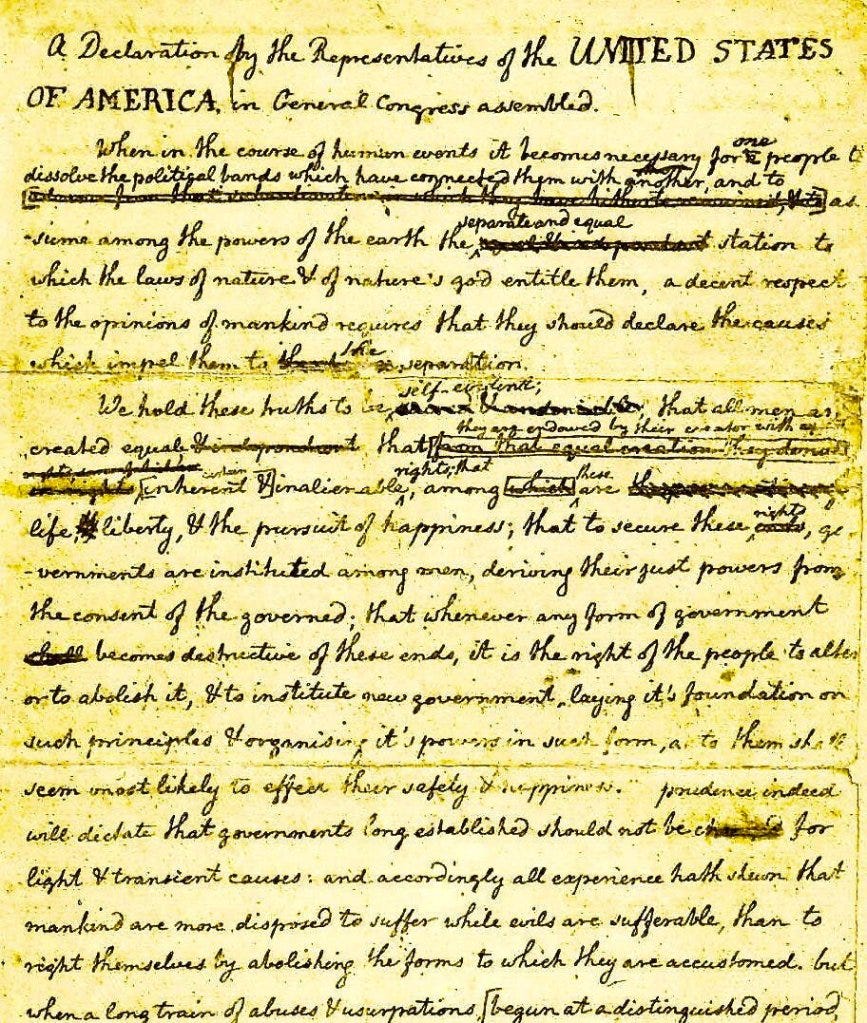 A Declaration by the Representatives of the UNITED STATES
OF AMERICA, in General Congress assembled.
one
When in the course of human events it becomes necessary for people t
dissolve the political bands which have connected them with another, and to
as
separate and equal
-sume among the powers of the earth the station to
which the laws of nature & of nature's god entitle them, a decent respect
to the opinions of mankind requires that they should declare the causes
the
which impel them to separation.
self-evident;
We hold these truths to be that all men ar
they are endowed by their creator with
created equal & independent that [from that equal creation they derive
certain rights; that these
[inherent &] inalienable, among [which] are
rights
life, liberty, & the pursuit of happiness; that to secure these ends, go
-vernments are instituted among men, deriving their just powers from
the consent of the governed; that whenever any form of government
shall becomes destructive of these ends, it is the right of the people to alter
or to abolish it, & to institute new government, laying it's foundation on
such principles & organising it's powers in such form, as to them shall
seem most likely to effect their safety & happiness. prudence indeed
will dictate that governments long established should not be for
light & transient causes: and accordingly all experience hath shewn that
mankind are more disposed to suffer while evils are sufferable, than to
right themselves by abolishing the forms to which they are accustomed. but
when a long train of abuses & usurpations, [begun at a distinguished period,